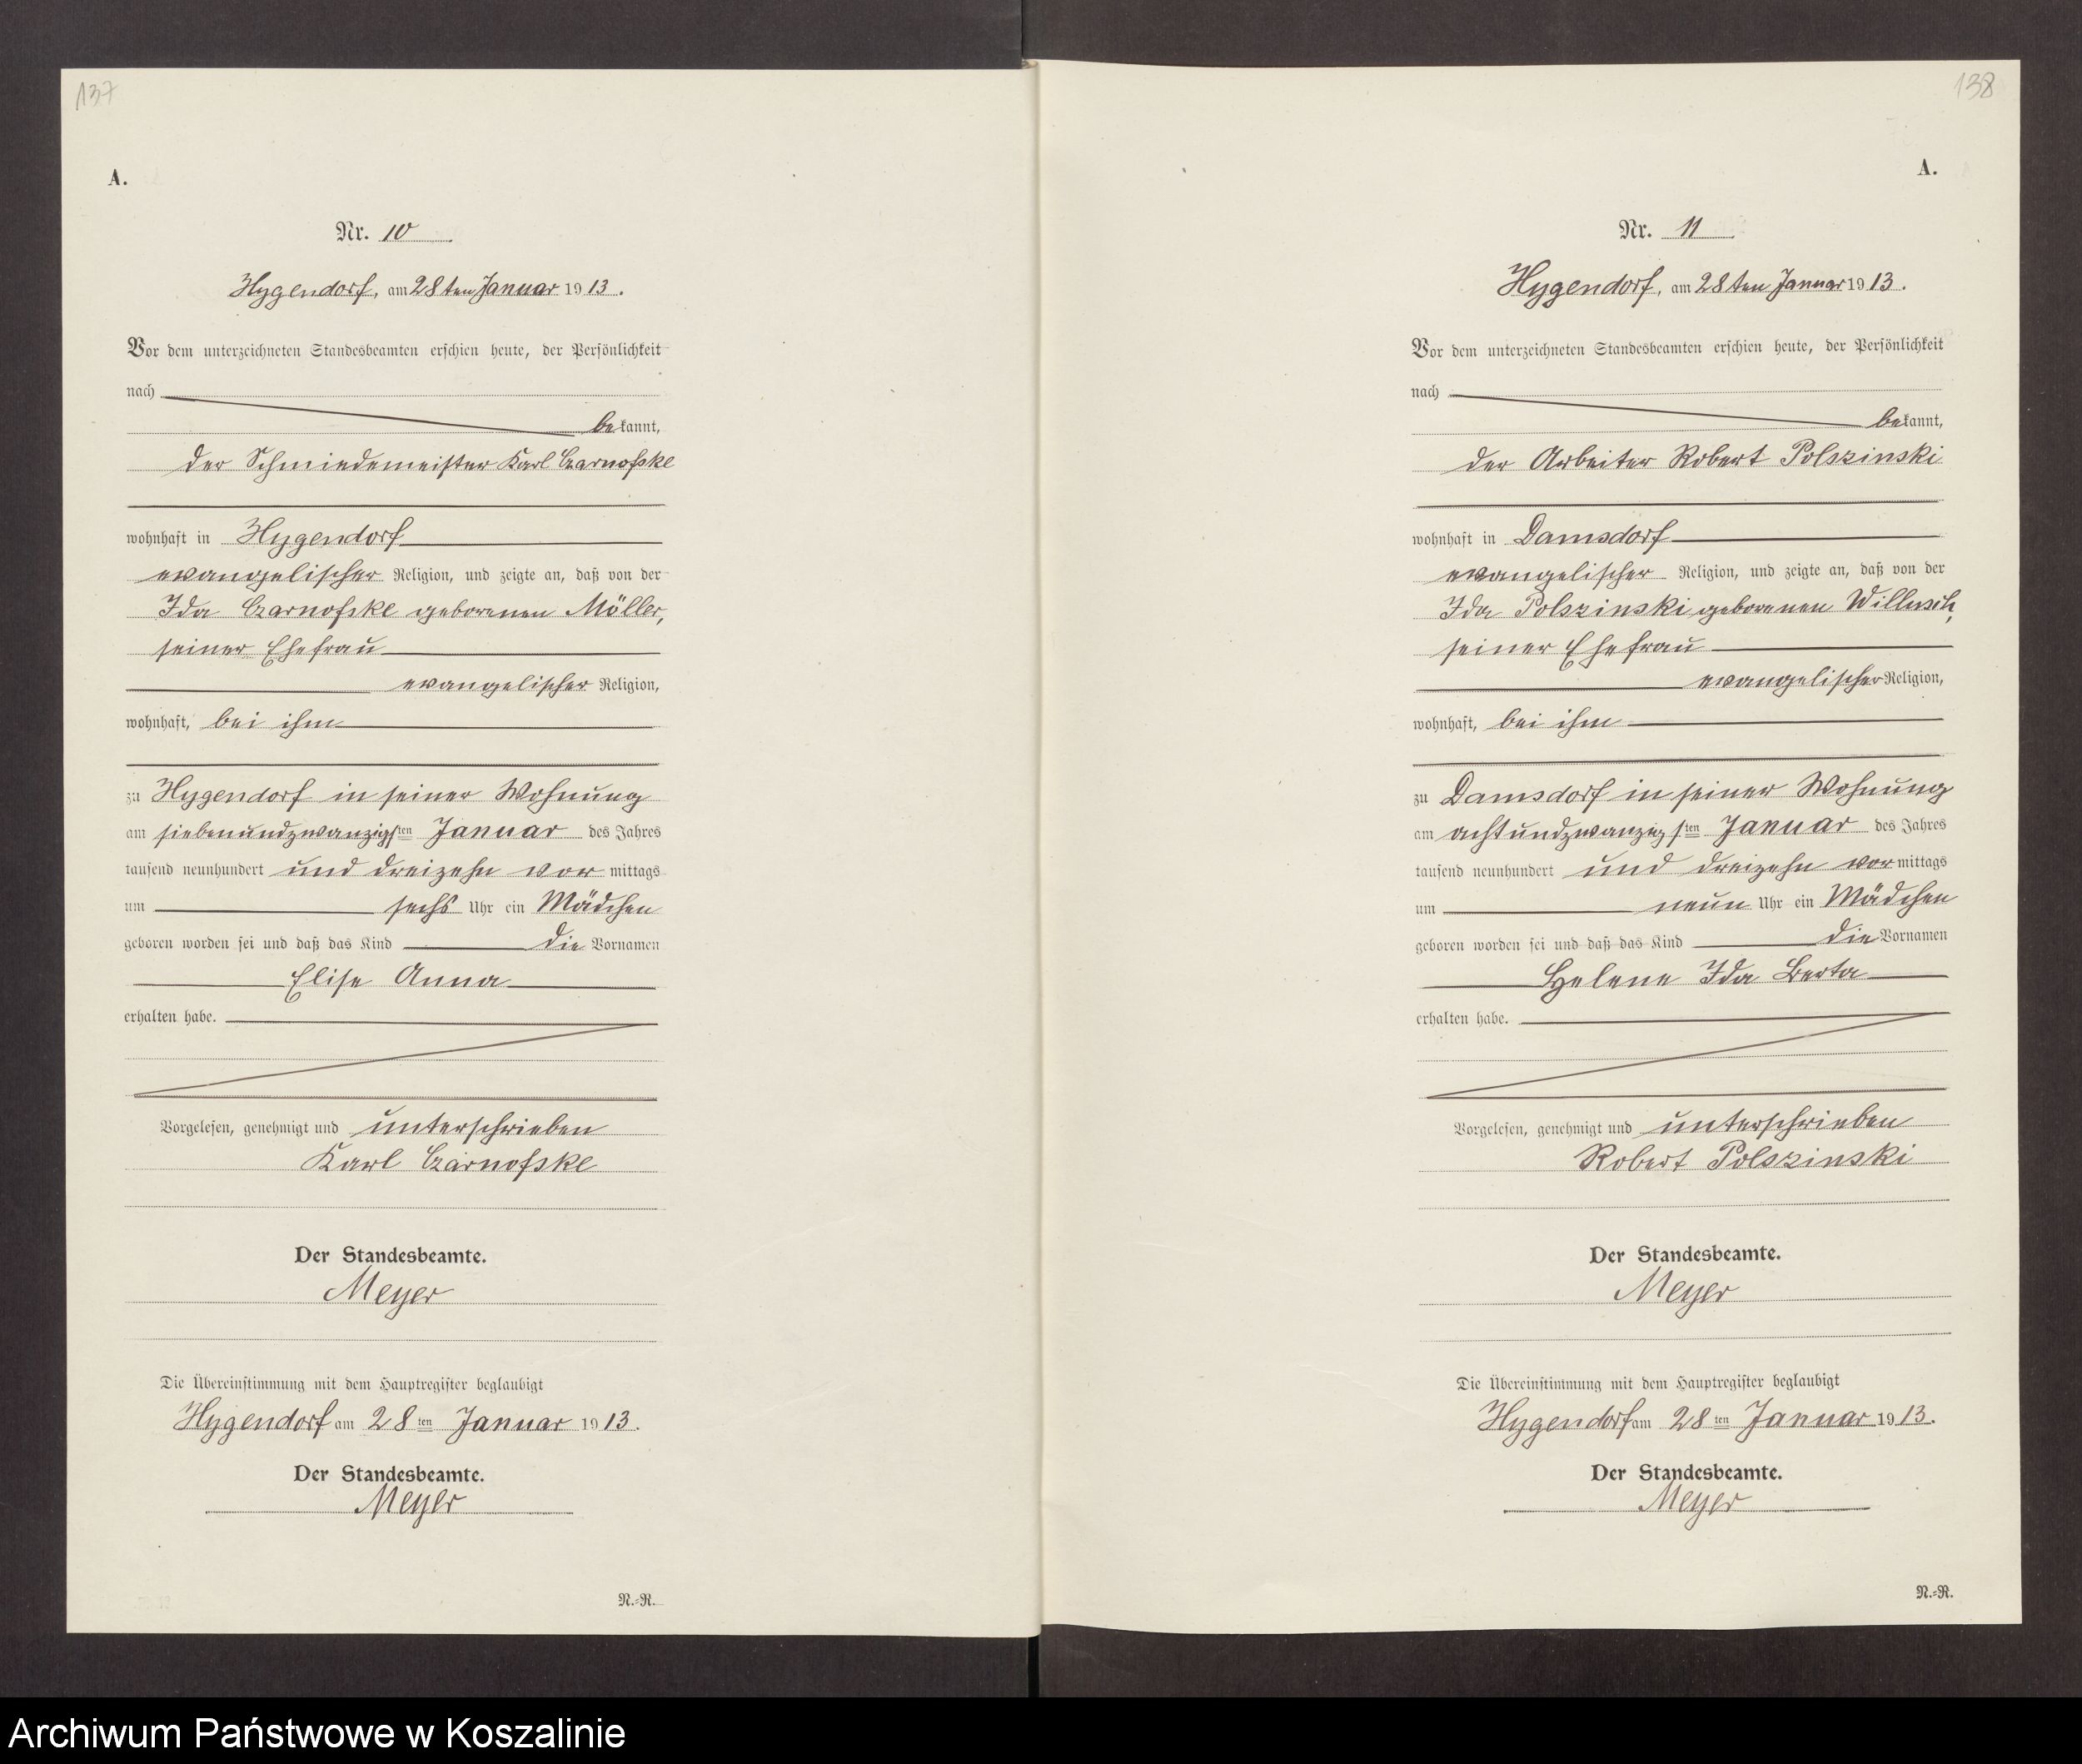 137
A.
Nr. 10
Hygendorf, am 28ten Januar 1913.
Vor dem unterzeichneten Standesbeamten erschien heute, der Persönlichkeit
nach
bekannt,
der Schmiedemeister Karl Czarnofske
wohnhaft in Hygendorf
evangelischer Religion, und zeigte an, daß von der
Ida Czarnofske geborenen Möller,
seiner Ehefrau
evangelischer Religion,
wohnhaft, bei ihm
zu Hygendorf in seiner Wohnung
am siebenundzwanzigsten Januar des Jahres
tausend neunhundert und dreizehn vormittags
um sechs Uhr ein Mädchen
geboren worden sei und daß das Kind die Vornamen
Elise Anna
erhalten habe.
Vorgelesen, genehmigt und unterschrieben
Karl Czarnofske
Der Standesbeamte.
Meyer
Die Übereinstimmung mit dem Hauptregister beglaubigt
Hygendorf am 28ten Januar 1913.
Der Standesbeamte.
Meyer
N.=R.
138
A.
Nr. 11
Hygendorf, am 28ten Januar 1913.
Vor dem unterzeichneten Standesbeamten erschien heute, der Persönlichkeit
nach
bekannt,
der Arbeiter Robert Polszinski
wohnhaft in Damsdorf
evangelischer Religion, und zeigte an, daß von der
Ida Polszinski geborenen
seiner Ehefrau
evangelischer Religion,
wohnhaft, bei ihm
zu Damsdorf in seiner Wohnung
am achtundzwanzigsten Januar des Jahres
tausend neunhundert und dreizehn vormittags
um neun Uhr ein Mädchen
geboren worden sei und daß das Kind die Vornamen
Helene Ida Berta
erhalten habe.
Vorgelesen, genehmigt und unterschrieben
Robert Polszinski
Der Standesbeamte.
Meyer
Die Übereinstimmung mit dem Hauptregister beglaubigt
Hygendorf am 28ten Januar 1913.
Der Standesbeamte.
Meyer
N.=R.
Archiwum Państwowe w Koszalinie